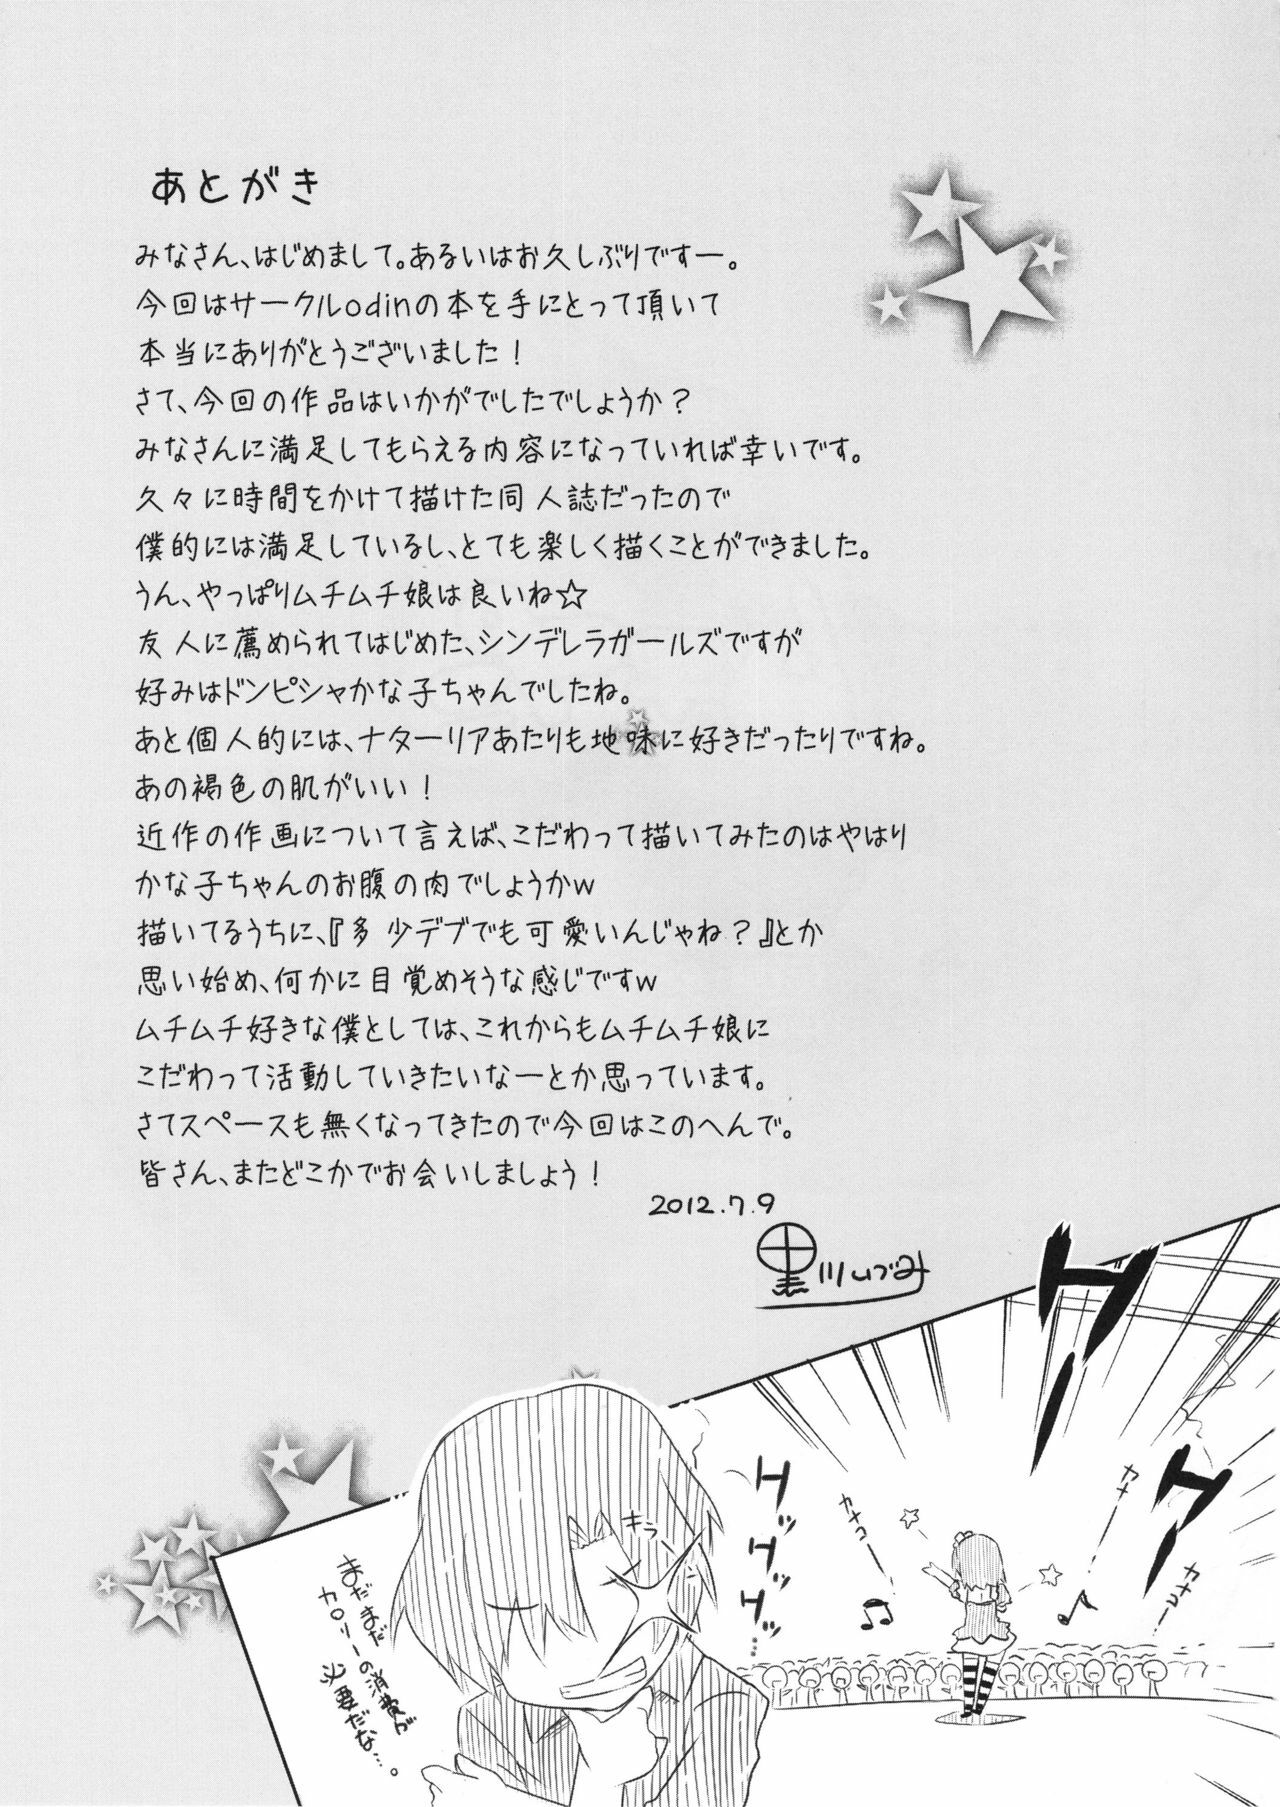 あとがき
みなさん、はじめまして。あるいはお久しぶりですー。
今回はサークルodinの本を手にとって頂いて
本当にありがとうございました！
さて、今回の作品はいかがでしたでしょうか？
みなさんに満足してもらえる内容になっていれば幸いです。
久々に時間をかけて描けた同人誌だったので
僕的には満足しているし、とても楽しく描くことができました。
うん、やっぱりムチムチ娘は良いね☆
友人に薦められてはじめた、シンデレラガールズですが
好みはドンピシャかな子ちゃんでしたね。
あと個人的には、ナターリアあたりも地味に好きだったりですね。
あの褐色の肌がいい！
近作の作画について言えば、こだわって描いてみたのはやはり
かな子ちゃんのお腹の肉でしょうかw
描いてるうちに、『多少デブでも可愛いんじゃね？』とか
思い始め、何かに目覚めそうな感じですw
ムチムチ好きな僕としては、これからもムチムチ娘に
こだわって活動していきたいなーとか思っています。
さてスペースも無くなってきたので今回はこのへんで。
皆さん、またどこかでお会いしましょう！
2012.7.9
黒川いづみ
カナー
カナコー
カナコー
キラーン
まだまだ
カロリーの消費が
必要だな…。